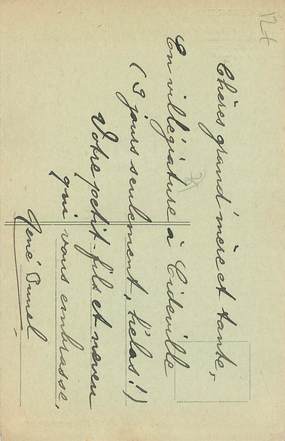 Chères grand'mère et tante,
En villégiature à Cideville
(3 jours seulement, hélas!)
Votre petit-fils et neveu
qui vous embrasse.
René